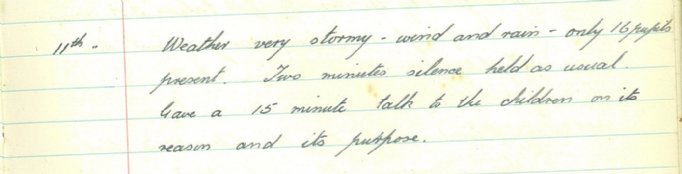 11th. Weather very stormy - wind and rain - only 16 pupils
present. Two minutes silence held as usual.
Gave a 15 minute talk to the children on its
reason and its purpose.